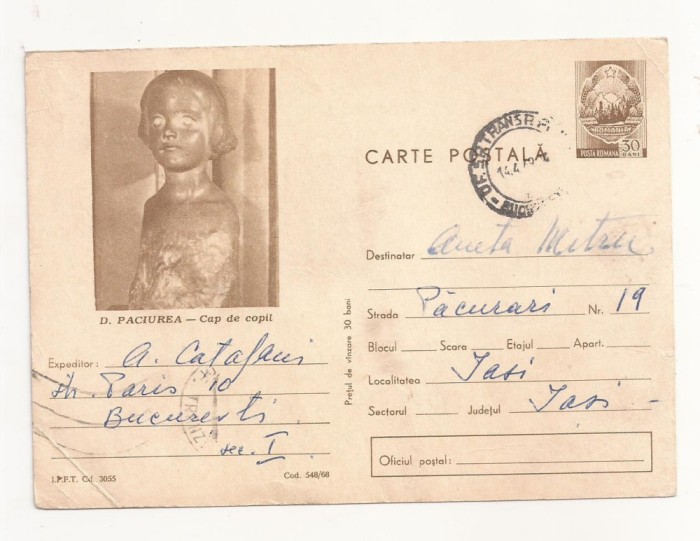 D. PACIUREA — Cap de copil
Expeditor: A. Catafani
str. Paris 10
Bucuresti
sec. I
I.P.F.T. Cd. 3055
Cod. 548/68
Prețul de vînzare 30 bani
CARTE POSTALĂ
POSTA ROMANA 30 BANI
14.4
Destinatar Aneta Mitru
Strada Păcurari Nr. 19
Blocul Scara Etajul Apart.
Localitatea Iasi
Sectorul Județul Iasi
Oficiul poștal: